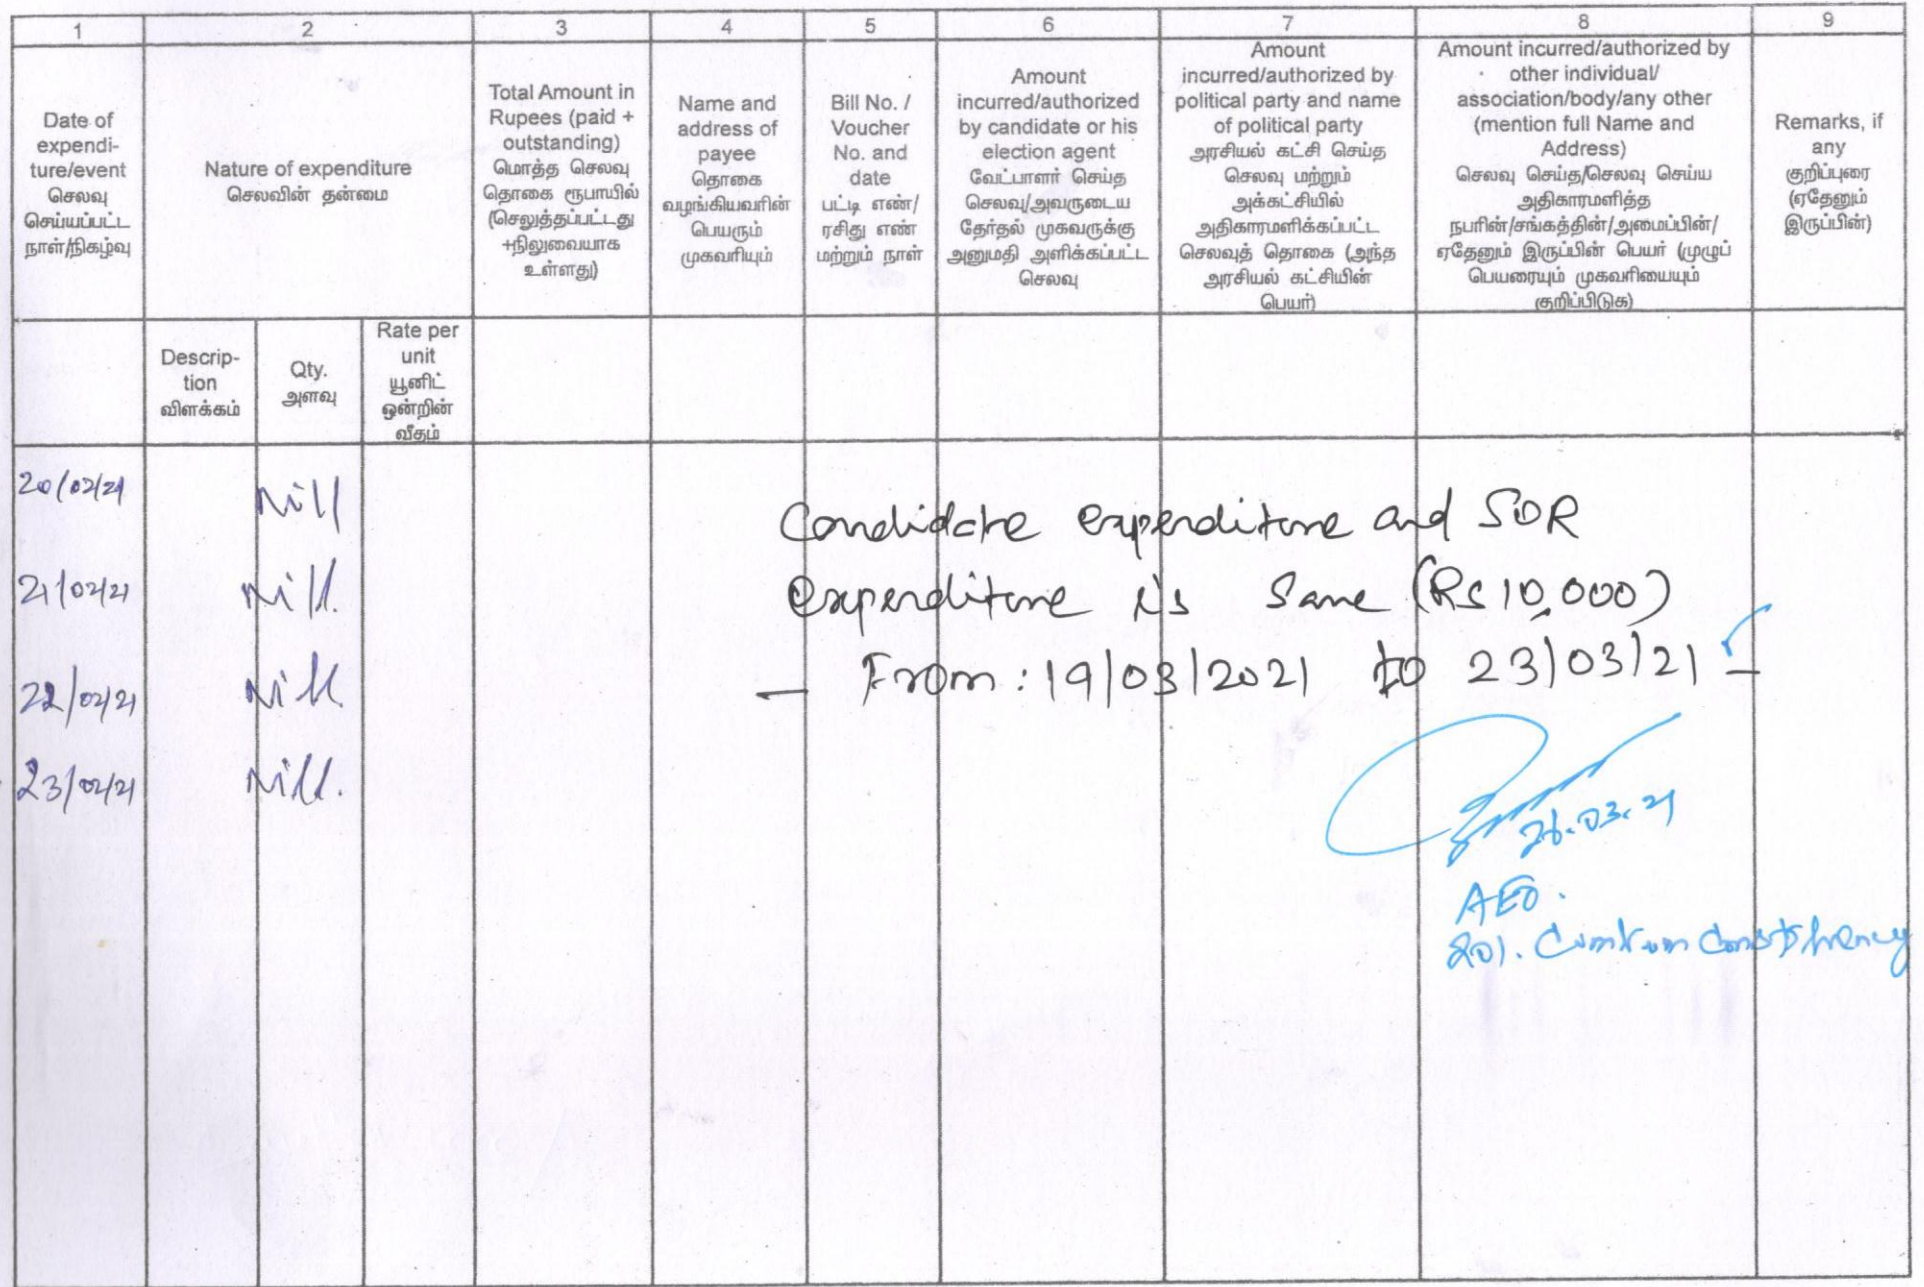 1 2 3 4 5 6 7 8 9
Date of
expendi-
ture/event
செலவு
செய்யப்பட்ட
நாள்/நிகழ்வு
Nature of expenditure
செலவின் தன்மை
Total Amount in
Rupees (paid +
outstanding)
மொத்த செலவு
தொகை ரூபாயில்
(செலுத்தப்பட்டது
+நிலுவையாக
உள்ளது)
Name and
address of
payee
தொகை
வழங்கியவரின்
பெயரும்
முகவரியும்
Bill No. /
Voucher
No. and
date
பட்டி எண்/
ரசிது எண்
மற்றும் நாள்
Amount
incurred/authorized
by candidate or his
election agent
வேட்பாளர் செய்த
செலவு/அவருடைய
தேர்தல் முகவருக்கு
அனுமதி அளிக்கப்பட்ட
செலவு
Amount
incurred/authorized by
political party and name
of political party
அரசியல் கட்சி செய்த
செலவு மற்றும்
அக்கட்சியில்
அதிகாரமளிக்கப்பட்ட
செலவுத் தொகை (அந்த
அரசியல் கட்சியின்
பெயர்)
Amount incurred/authorized by
other individual/
association/body/any other
(mention full Name and
Address)
செலவு செய்த/செலவு செய்ய
அதிகாரமளித்த
நபரின்/சங்கத்தின்/அமைப்பின்/
ஏதேனும் இருப்பின் பெயர் (முழுப்
பெயரையும் முகவரியையும்
குறிப்பிடுக)
Remarks, if
any
குறிப்புரை
(ஏதேனும்
இருப்பின்)
Descrip-
tion
விளக்கம்
Qty.
அளவு
Rate per
unit
யூனிட்
ஒன்றின்
வீதம்
20/02/21 Nill
21/02/21 Nill.
22/02/21 Nill
23/02/21 Nill.
Candidate expenditure and SOR
expenditure is Same (Rs 10,000)
— From : 19/03/2021 to 23/03/21 —
26.03.21
AEO.
201. Cumbum Constituency